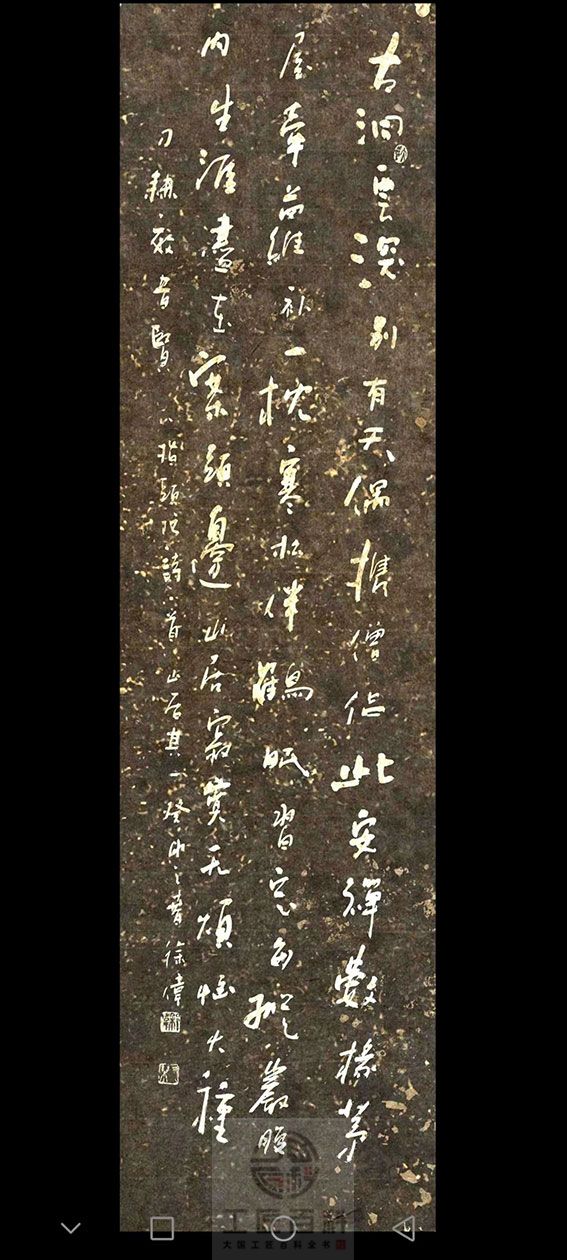 古洞云深别有天偶携僧侣此安禅数椽茅
屋牵萝补一枕寒松伴鹤眠习定每从岩腹
内生涯尽在案头边山居寂寞无烦恼大种
刀耕效昔贤 八指头陀诗一首山居其一癸卯之春徐伟
工匠百科
大国工匠百科全书